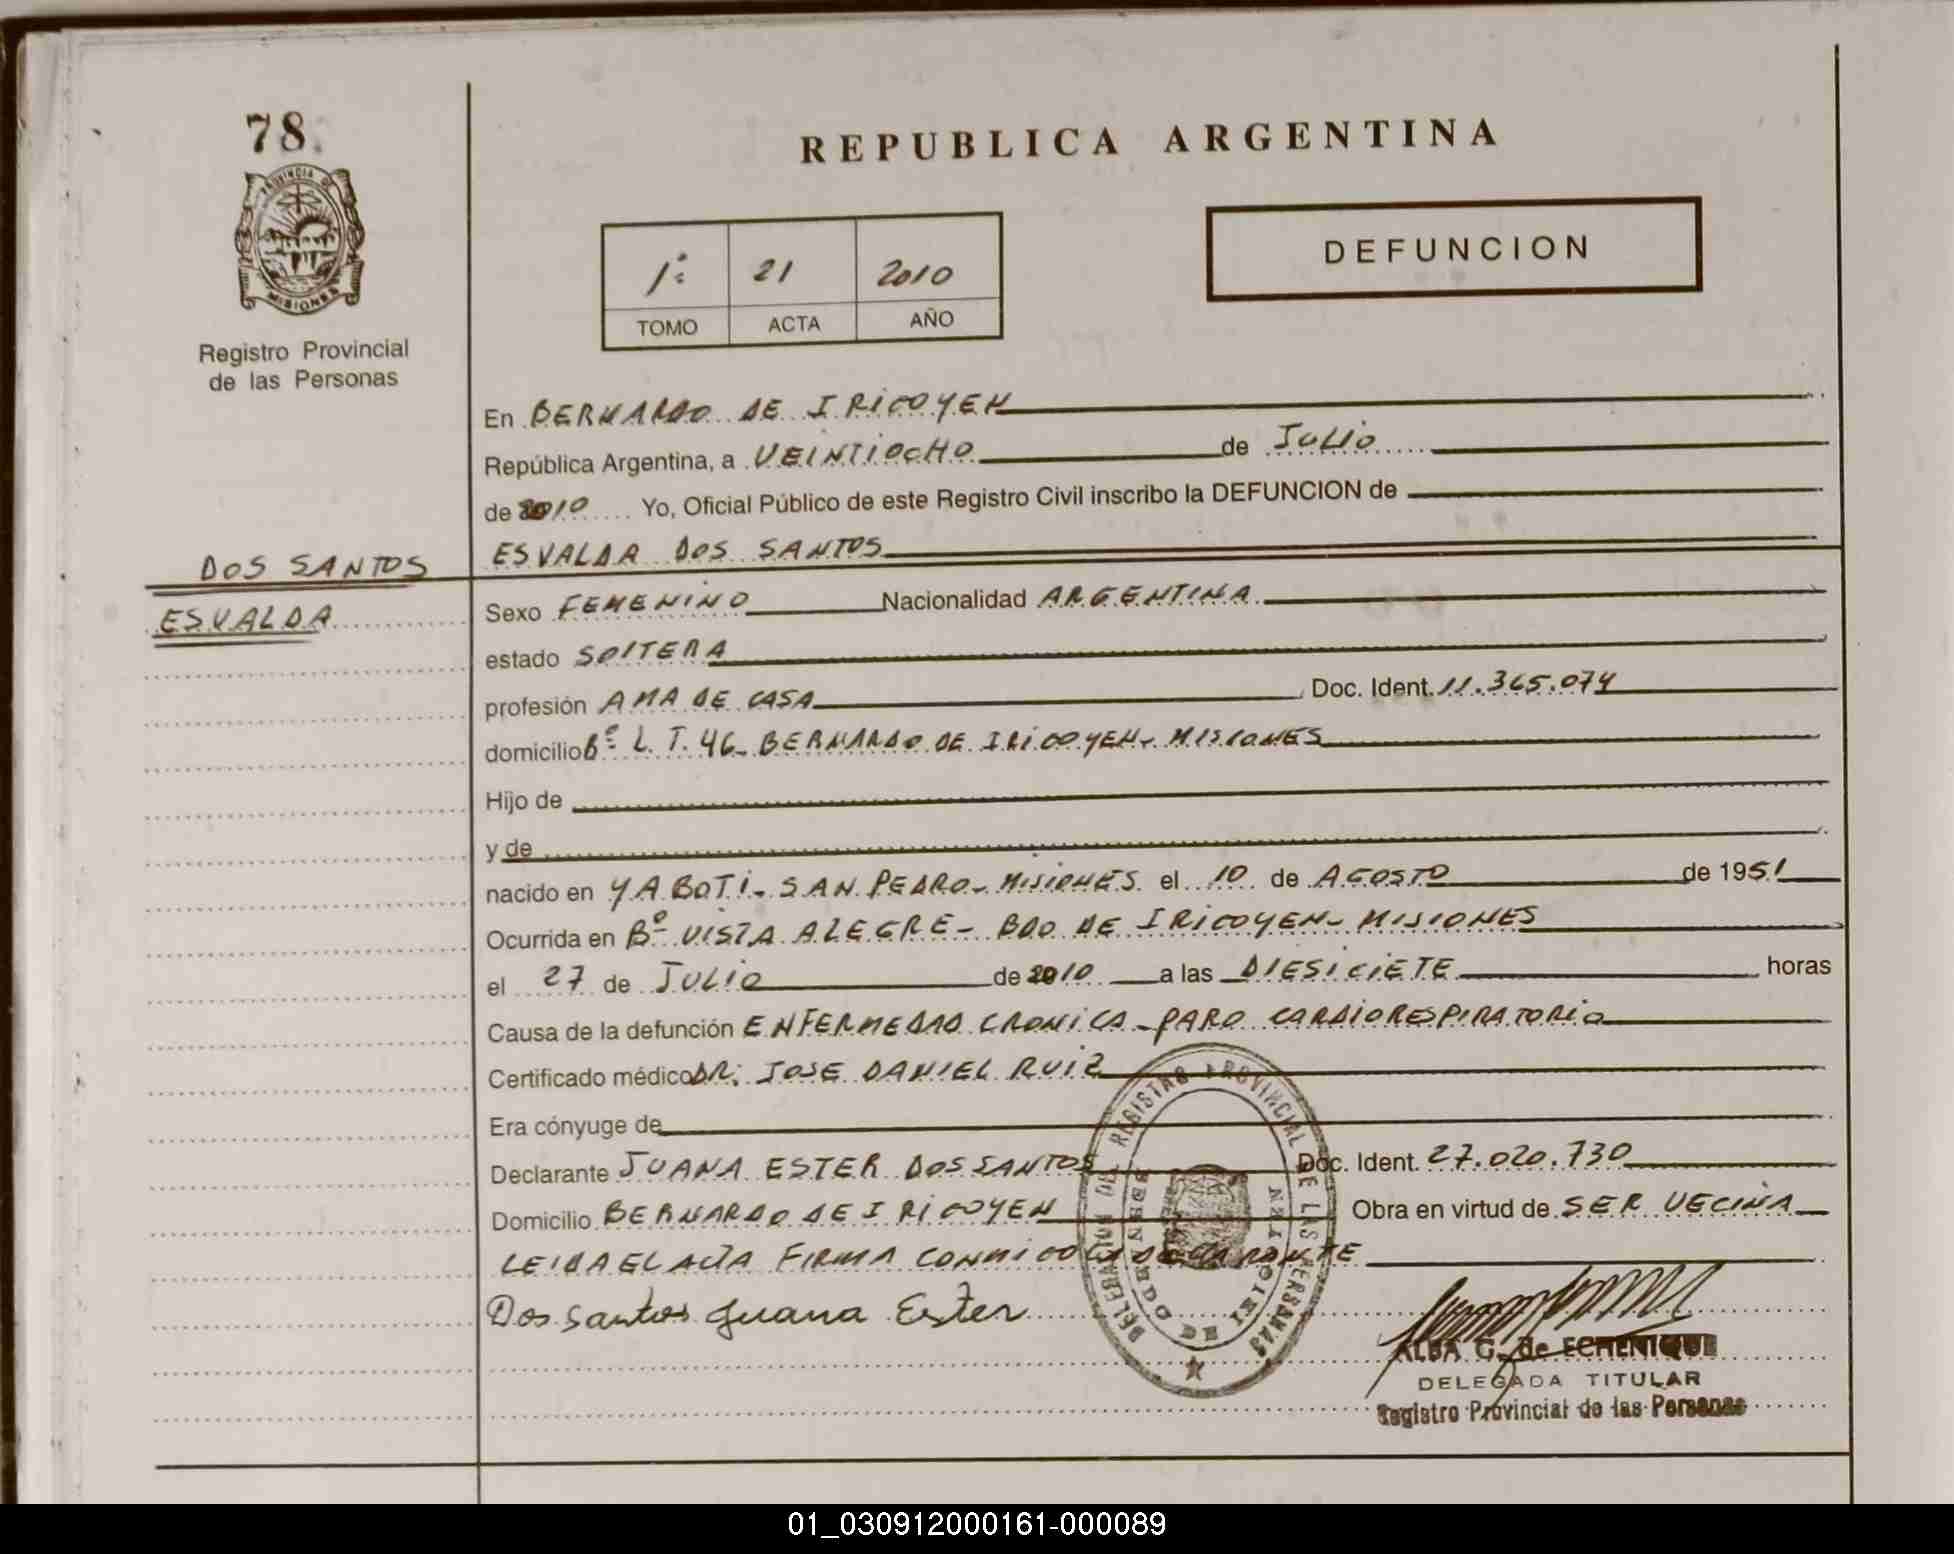 78
PROVINCIA DE
MISIONES
Registro Provincial
de las Personas
REPUBLICA ARGENTINA
1º 21 2010
TOMO ACTA AÑO
DEFUNCION
En BERNARDO DE IRICOYEN
República Argentina, a VEINTIOCHO de JULIO
de 2010 Yo, Oficial Público de este Registro Civil inscribo la DEFUNCION de
ESVALDA DOS SANTOS
DOS SANTOS
ESVALDA
Sexo FEMENINO Nacionalidad ARGENTINA
estado SOLTERA
profesión AMA DE CASA Doc. Ident. 11.365.074
domicilio Bº L.T. 46- BERNARDO DE IRICOYEN- MISIONES
Hijo de
y de
nacido en YABOTI- SAN PEDRO- MISIONES el 10 de AGOSTO de 1951
Ocurrida en Bº VISTA ALEGRE- BDO DE IRICOYEN- MISIONES
el 27 de JULIO de 2010 a las DIESICIETE horas
Causa de la defunción ENFERMEDAD CRONICA-PARO CARDIORESPIRATORIO
Certificado médico DR. JOSE DANIEL RUIZ
Era cónyuge de
Declarante JUANA ESTER DOS SANTOS Doc. Ident. 27.020.730
Domicilio BERNARDO DE IRICOYEN Obra en virtud de SER VECINA
LEIDA EL ACTA FIRMA CONMIGO LA DECLARANTE
Dos Santos Juana Ester
DELEGACION DEL REGISTRO PROVINCIAL DE LAS PERSONAS
BERNARDO DE IRIGOYEN
ALBA G. de ECHENIQUE
DELEGADA TITULAR
Registro Provincial de las Personas
01_030912000161-000089